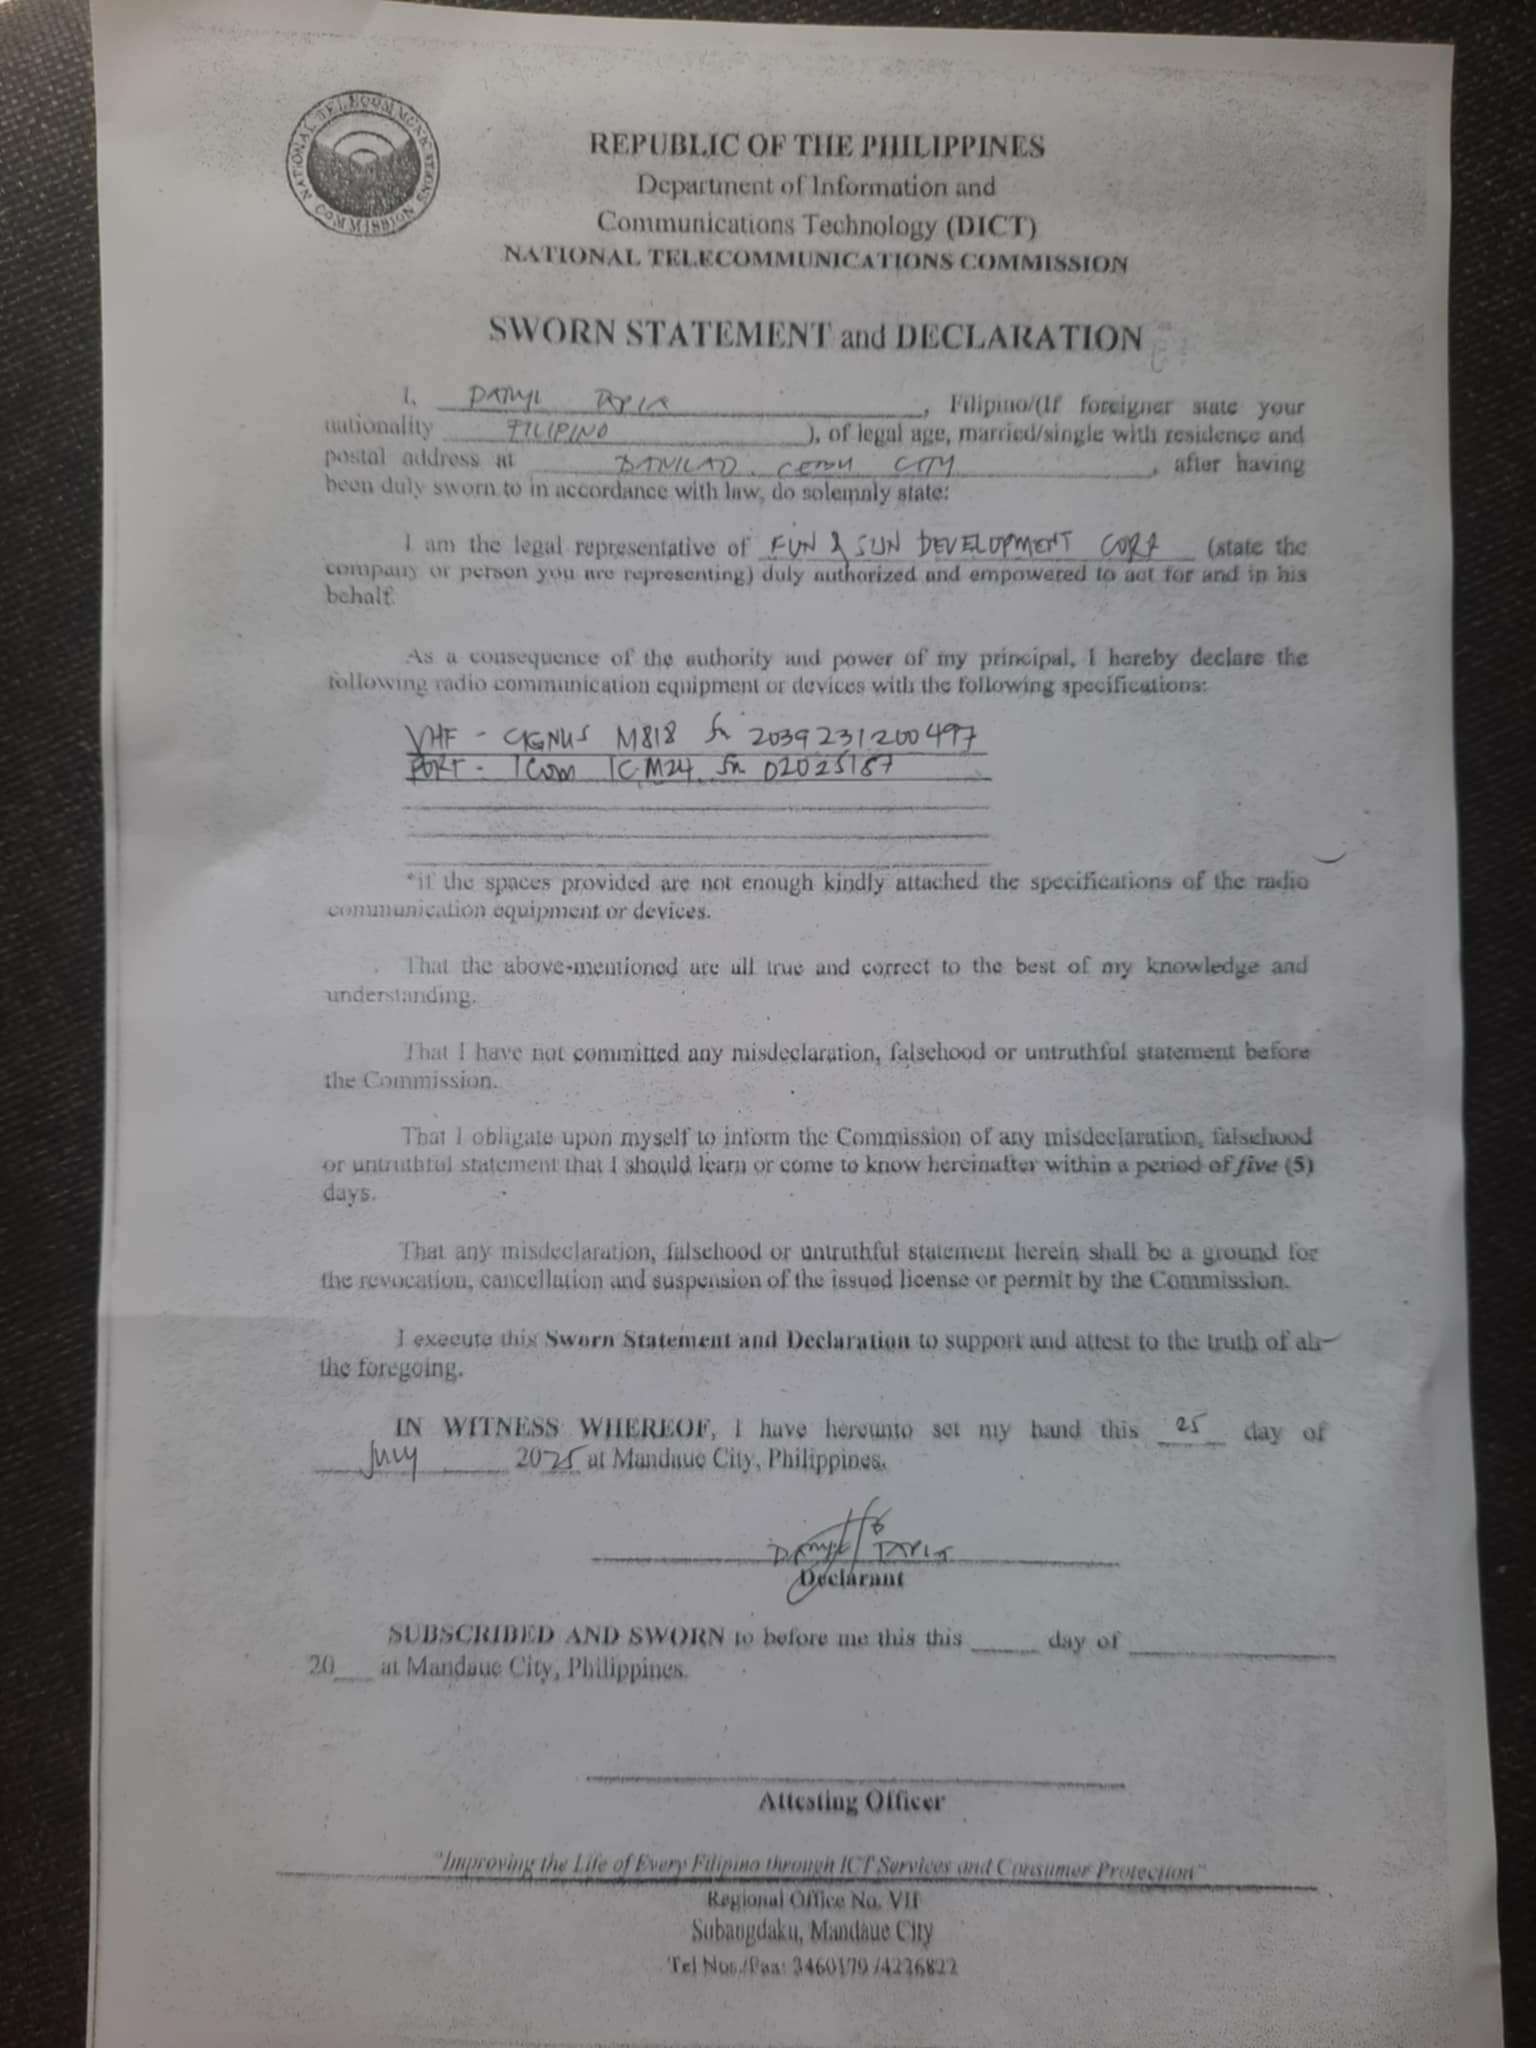 NATIONAL TELECOMMUNICATIONS COMMISSION
REPUBLIC OF THE PHILIPPINES
Department of Information and
Communications Technology (DICT)
NATIONAL TELECOMMUNICATIONS COMMISSION
SWORN STATEMENT and DECLARATION
I, DARYL TAPIA, Filipino/(If foreigner state your
nationality FILIPINO), of legal age, married/single with residence and
postal address at BANILAD. CEBU CITY, after having
been duly sworn to in accordance with law, do solemnly state:
I am the legal representative of FUN & SUN DEVELOPMENT CORP (state the
company or person you are representing) duly authorized and empowered to act for and in his
behalf.
As a consequence of the authority and power of my principal, I hereby declare the
following radio communication equipment or devices with the following specifications:
VHF - CIGNUS M818 Sn 2039231200497
PORT - ICOM IC-M24. Sn 02025187
*if the spaces provided are not enough kindly attached the specifications of the radio
communication equipment or devices.
That the above-mentioned are all true and correct to the best of my knowledge and
understanding.
That I have not committed any misdeclaration, falsehood or untruthful statement before
the Commission.
That I obligate upon myself to inform the Commission of any misdeclaration, falsehood
or untruthful statement that I should learn or come to know hereinafter within a period of five (5)
days.
That any misdeclaration, falsehood or untruthful statement herein shall be a ground for
the revocation, cancellation and suspension of the issued license or permit by the Commission.
I execute this Sworn Statement and Declaration to support and attest to the truth of all
the foregoing.
IN WITNESS WHEREOF, I have hereunto set my hand this 25 day of
July 2025 at Mandaue City, Philippines.
DARYL TAPIA
Declarant
SUBSCRIBED AND SWORN to before me this this ____ day of ____
20___ at Mandaue City, Philippines.
Attesting Officer
"Improving the Life of Every Filipino through ICT Services and Consumer Protection"
Regional Office No. VII
Subangdaku, Mandaue City
Tel Nos./Fax: 3460179 /4226822